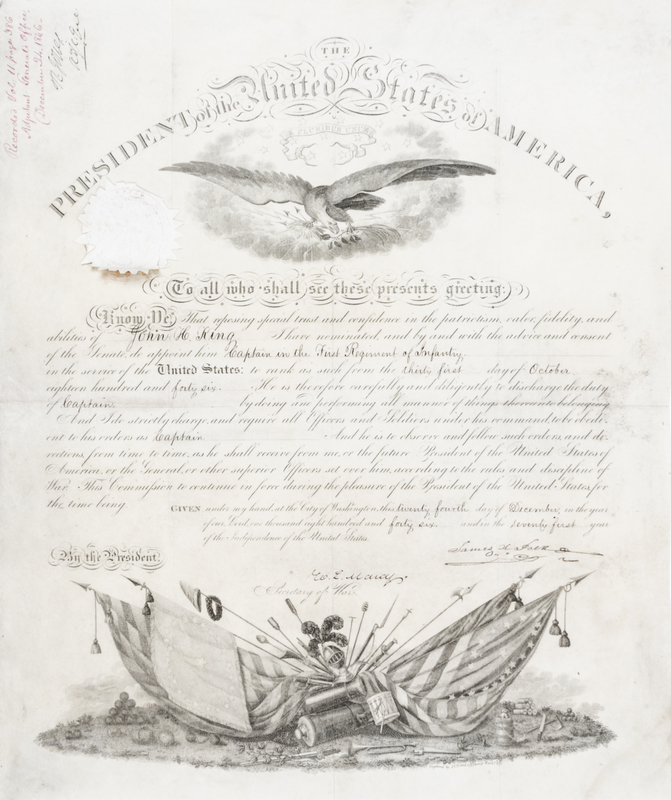 Recorded Vol. 11 page 386
Adjutant General's Office
December 24, 1846.
THE
PRESIDENT of the United States of AMERICA,
E PLURIBUS UNUM
To all who shall see these presents greeting:
Know Ye, That reposing special trust and confidence in the patriotism, valor, fidelity, and
abilities of John H. King I have nominated, and by and with the advice and consent
of the Senate, do appoint him Captain in the First Regiment of Infantry,
in the service of the United States: to rank as such from the thirty first day of October
eighteen hundred and forty six. He is therefore carefully and diligently to discharge the duty
of Captain by doing and performing all manner of things thereunto belonging.
And I do strictly charge, and require all Officers and Soldiers under his command, to be obedi-
ent to his orders as Captain And he is to observe and follow such orders, and di-
rections from time to time, as he shall receive from me, or the future President of the United States of
America, or the General, or other superior Officers set over him, according to the rules and discipline of
War. This Commission to continue in force during the pleasure of the President of the United States, for
the time being.
GIVEN under my hand, at the City of Washington, this twenty fourth day of December, in the year
of our Lord, one thousand eight hundred and forty six, and in the seventy first year
of the Independence of the United States.
By the President,
James K. Polk
W. L. Marcy,
Secretary of War.